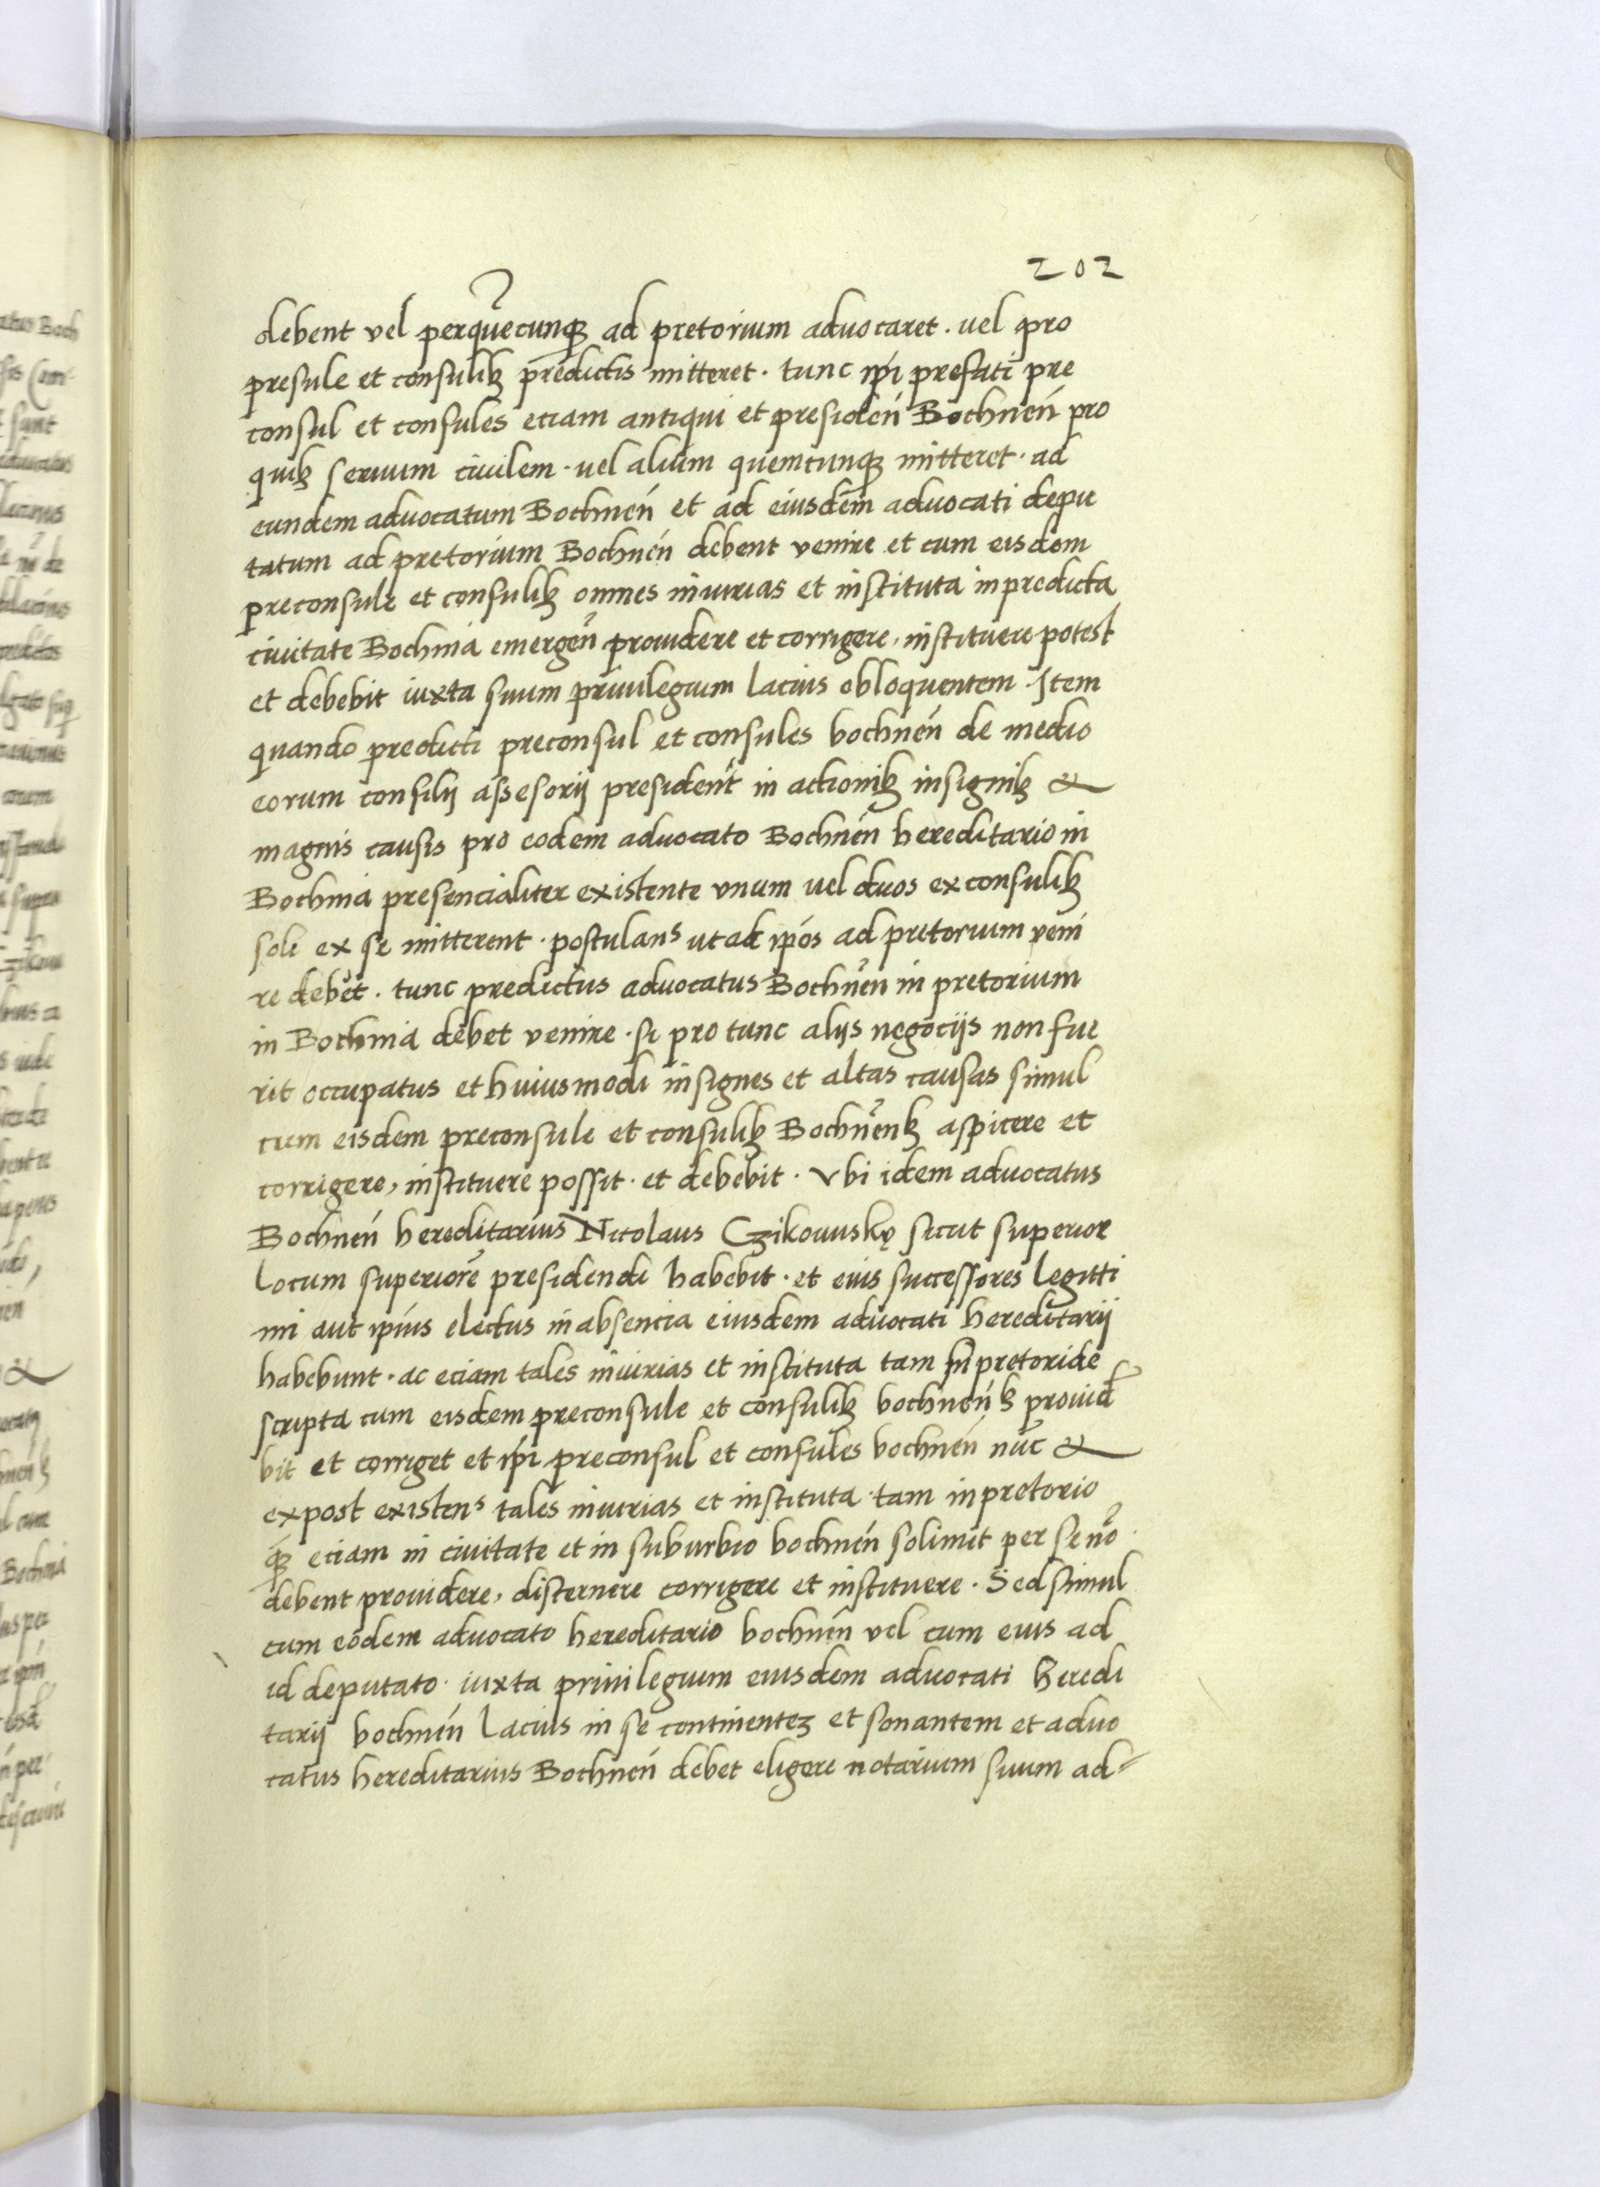 202
debent vel perquēcunqȝ ad pretorium advocaret · vel pro
presule et consulibȝ predictis mitteret · tunc ip̄i prefati pre
consul et consules eciam antiqui et presideń Bochneń pro
quibȝ seruum civilem · vel alium quemcunqȝ mitteret · ad
eundem advocatum Bochneń et ad eiusdem advocati depu
tatum ad pretorium Bochneń debent venire et cum eisdem
preconsule et consulibȝ omnes iniurias et instituta in predicta
civitate Bochnia emergeń providere et corrigere, instituere potest
et debebit iuxta suum privilegium lacius obloquentem · Item
quando predicti preconsul et consules bochneń de medio
eorum consilij assesorij president̄ in actionibȝ insignibȝ &
magnis causis pro eodem advocato Bochneń hereditario in
Bochnia presencialiter existente unum vel duos ex consulibȝ
soli ex se mitterent · postulans ut ad ip̄os ad pretorium veni
re debet · tunc predictus advocatus Bochneń in pretorium
in Bochnia debet venire · si pro tunc alijs negocijs non fue
rit occupatus et huiusmodi insignes et altas causas simul
cum eisdem preconsule et consulibȝ Bochnenbȝ aspicere et
corrigere, instituere possit · et debebit · Vbi idem advocatus
Bochneń hereditarius Nicolaus Czikowskę sicut superior
locum superiorē presidendi habebit · et eius successores legitti
mi aut ip̄ius electus in absencia eiusdem advocati hereditarij
habebunt · ac eciam tales iniurias et instituta tam in pretorio de
scripta cum eisdem preconsule et consulibȝ bochneńbȝ provid
bit et corriget et ip̄i preconsul et consules bochneń nūc &
expost existens tales iniurias et instituta · tam in pretorio
qȝ eciam in civitate et in suburbio bochneń solimit per se nō
debent providere, discernere corrigere et instituere · Sed simul
cum eodem advocato hereditario bochneń vel cum eius ad
id deputato · iuxta privilegium eiusdem advocati heredi
tarij bochneń lacius in se continentez et sonantem et advo
catus hereditarius Bochneń debet eligere notarium suum ad=